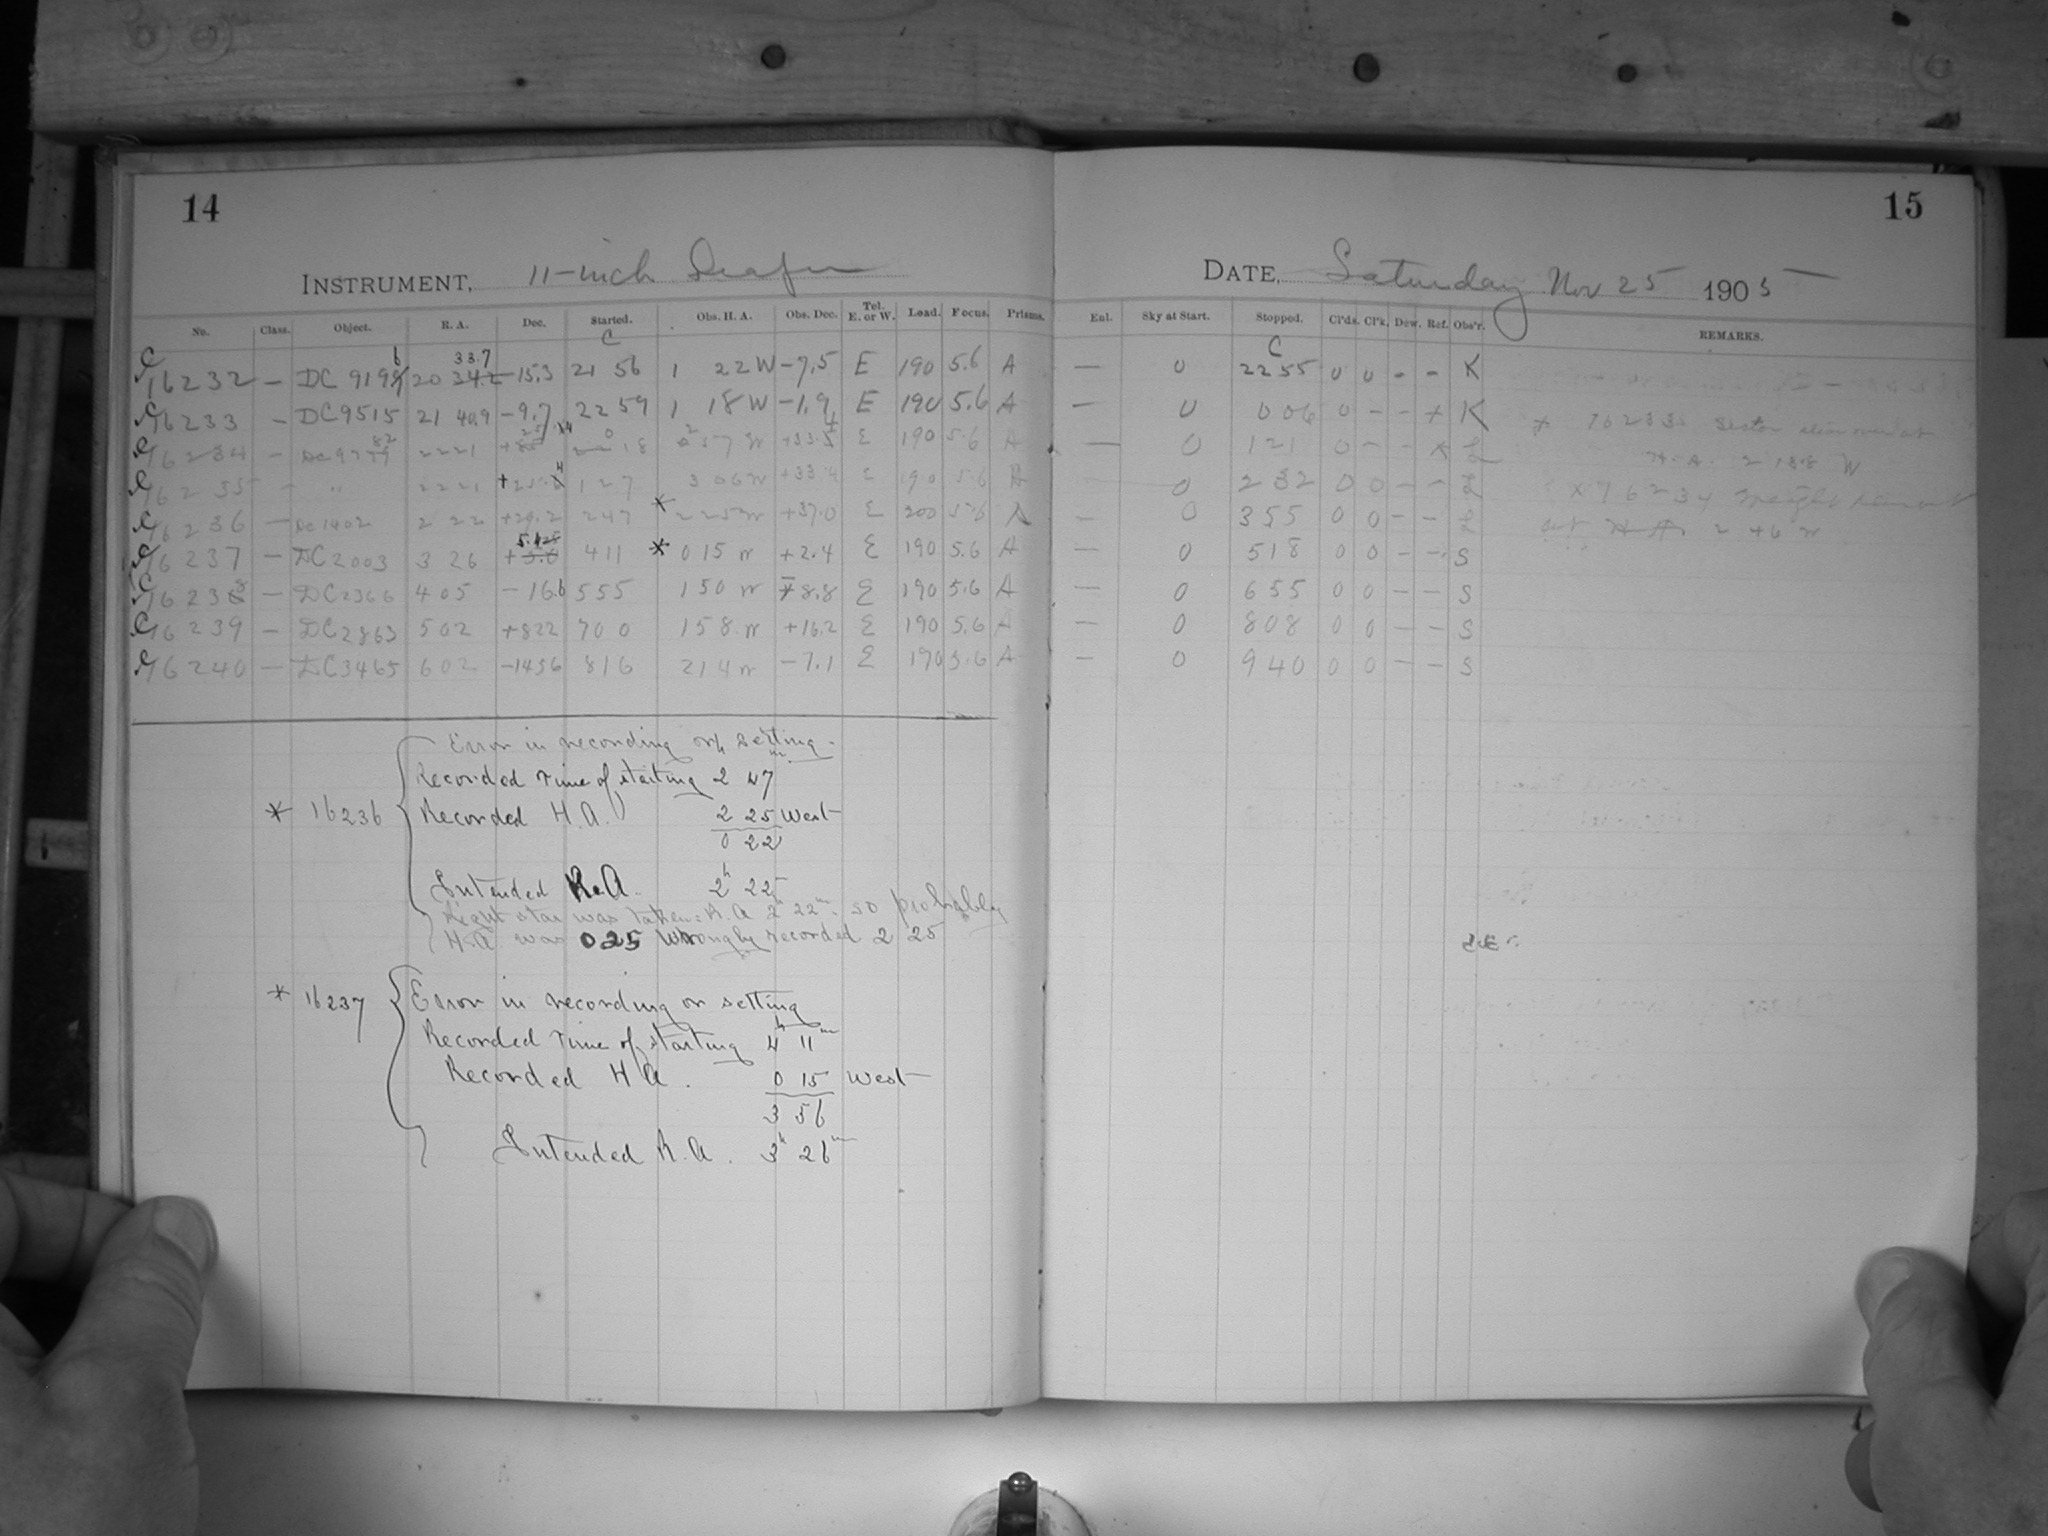 14
INSTRUMENT, 11-inch Draper
No. Class. Object. R. A. Dec. Started. Obs. H. A. Obs. Dec. Tel. E. or W. Load. Focus. Prisms.
C 16232 – DC 9196 20 33.7 –15.3 21 56 1 22 W –7.5 E 190 5.6 A
C 16233 – DC 9515 21 40.9 –9.7 22 59 1 18 W –1.9 E 190 5.6 A
C 16234 – 22 21 0 18 2 57 W +33.4 E 190 5.6 A
C 16235 – " 22 21 1 27 3 06 W +33.4 E 190 5.6 A
C 16236 – DC 1402 2 22 +29.2 2 47 * 2 25 W +37.0 E 200 5.6 A
C 16237 – DC 2003 3 26 4 11 * 0 15 W +2.4 E 190 5.6 A
C 16238 – DC 2366 4 05 –16.6 5 55 1 50 W –8.8 E 190 5.6 A
C 16239 – DC 2863 5 02 +8 22 7 00 1 58 W +16.2 E 190 5.6 A
C 16240 – DC 3465 6 02 –14 56 8 16 2 14 W –7.1 E 190 5.6 A
* 16236
Error in recording or setting.
Recorded Time of starting 2 47
Recorded H. A. 2 25 West
0 22
Intended R.A. 2h 22
Right star was taken: R.A 2h 22m. so probably
H.A. was 0 25 wrongly recorded 2 25
* 16237
Error in recording or setting
Recorded Time of starting 4h 11m
Recorded H A. 0 15 West
3 56
Intended R. A. 3h 26m
15
DATE, Saturday Nov 25 1905
Enl. Sky at Start. Stopped. Cl'ds. Cl'k. Dew. Ref. Obs'r. REMARKS.
– 0 22 55 0 0 – – K
– 0 0 06 0 – – + K
– 0 1 21 0 – – ×
– 0 2 32 0 0 – –
– 0 3 55 0 0 – –
– 0 5 18 0 0 – – S
– 0 6 55 0 0 – – S
– 0 8 08 0 0 – – S
– 0 9 40 0 0 – – S
16233 Sector
H. A. 2 18.8 W
× 16234 weight
at H A 2 46 W